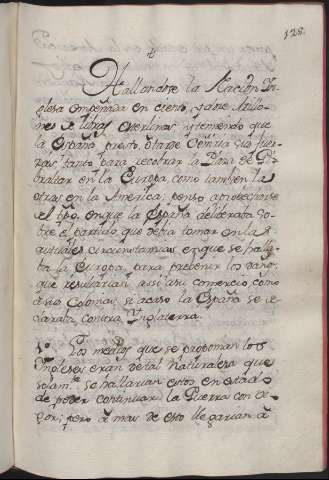 128.
Hallandose la Nacion In-
glesa empeñada en ciento, y siete Millo-
nes de libras esterlinas, y temiendo que
la España presto, ò tarde Vniria sus fuer-
zas tanto para recobrar la Plaza de Gi-
braltar en la Europa como tambien las
otras en la America; penso aprovecharse
el tpo. en que la España deliberaba so-
bre el partido, que debia tomar en las
actuales circunstancias en que se halla-
ba la Europa para prevenir los daños
que resultarian assi à su comercio como
à sus Colonias si acaso la España se de-
clarara contra Ynglaterra.
1º. Los medios que se proponian los
Yngleses eran de tal Naturaleza que
solamte. se hallarian estos en estado
de poder continuar la Guerra con vi-
gor; pero à mas de esto llegarian à